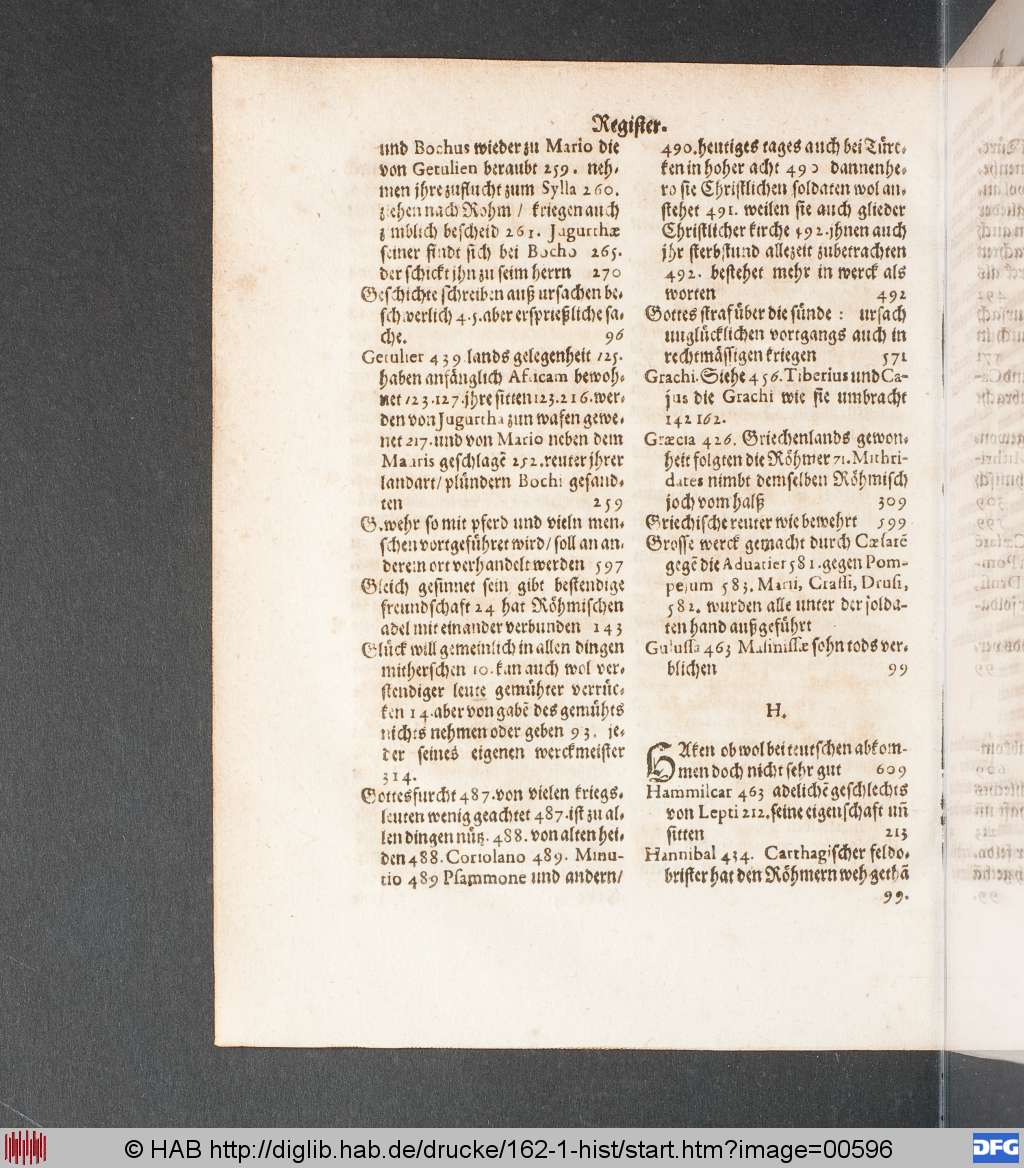 Register.
und Bochus wieder zu Mario die
von Getulien beraubt 259. neh-
men jhre zuflucht zum Sylla 260.
ziehen nach Rohm / kriegen auch
zimblich bescheid 261. Jugurthæ
seiner findt sich bei Bocho 265.
der schickt jhn zu seim herrn 270
Geschichte schreiben auß ursachen be-
schwerlich 4.5. aber ersprießliche sa-
che. 96
Getulier 439 lands gelegenheit 125.
haben anfänglich Africam bewoh-
net 123.127. jhre sitten 123.216. wer-
den von Jugurtha zun wafen gewe-
net 217. und von Mario neben dem
Mauris geschlagẽ 252. reuter jhrer
landart / plündern Bochi gesand-
ten 259
G.wehr so mit pferd und vieln men-
schen vortgeführet wird / soll an an-
derein ort verhandelt werden 597
Gleich gesinnet sein gibt bestendige
freundschaft 24 hat Röhmischen
adel mit einander verbunden 143
Glück will gemeinlich in allen dingen
mitherschen 10. kan auch wol ver-
stendiger leute gemühter verrüc-
ken 14. aber von gabẽ des gemühts
nichts nehmen oder geben 93. je-
der seines eigenen werckmeister
314.
Gottesfurcht 487. von vielen kriegs-
leuten wenig geachtet 487. ist zu al-
len dingen nütz. 488. von alten hei-
den 488. Coriolano 489. Minu-
tio 489 Psammone und andern /
490. heutiges tages auch bei Türc-
ken in hoher acht 490 dannenhe-
ro sie Christlichen soldaten wol an-
stehet 491. weilen sie auch glieder
Christlicher kirche 492. jhnen auch
jhr sterbstund allezeit zubetrachten
492. bestehet mehr in werck als
worten 492
Gottes straf über die sünde : ursach
unglücklichen vortgangs auch in
rechtmässigen kriegen 571
Grachi. Siehe 456. Tiberius und Ca-
jus die Grachi wie sie umbracht
142 162.
Græcia 426. Griechenlands gewon-
heit folgten die Röhmer 71. Mithri-
dates nimbt demselben Röhmisch
joch vom halß 309
Griechische reuter wie bewehrt 599
Grosse werck gemacht durch Cæsarẽ
gegẽ die Aduatier 581. gegen Pom-
pejum 583. Marii, Crassi, Drusi,
582. wurden alle unter der solda-
ten hand außgeführt
Gulussa 463 Masinissæ sohn tods ver-
blichen 99
H.
HAken ob wol bei teutschen abkom-
men doch nicht sehr gut 609
Hammilcar 463 adelichẽ geschlechts
von Lepti 212. seine eigenschaft uñ
sitten 213
Hannibal 434. Carthagischer feldo-
brister hat den Röhmern weh gethã
99.
© HAB http://diglib.hab.de/drucke/162-1-hist/start.htm?image=00596
DFG